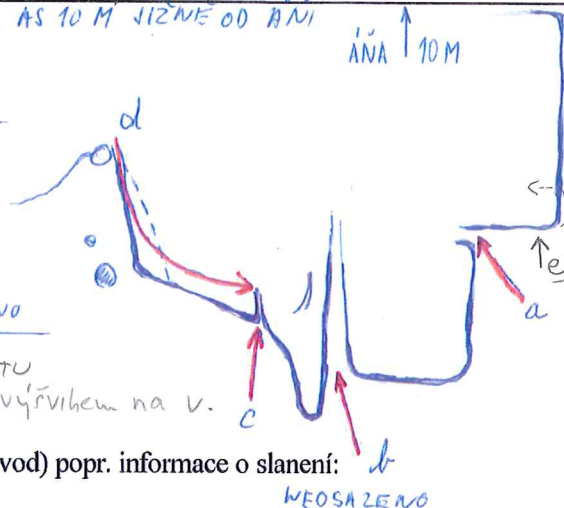 AS 10 M JIŽNĚ OD ANI
ÁŇA ↑ 10 M
d
e
a
VO
TU
výšvihem na v.
c
vod) popr. informace o slanení:
b
NEOSAZENO